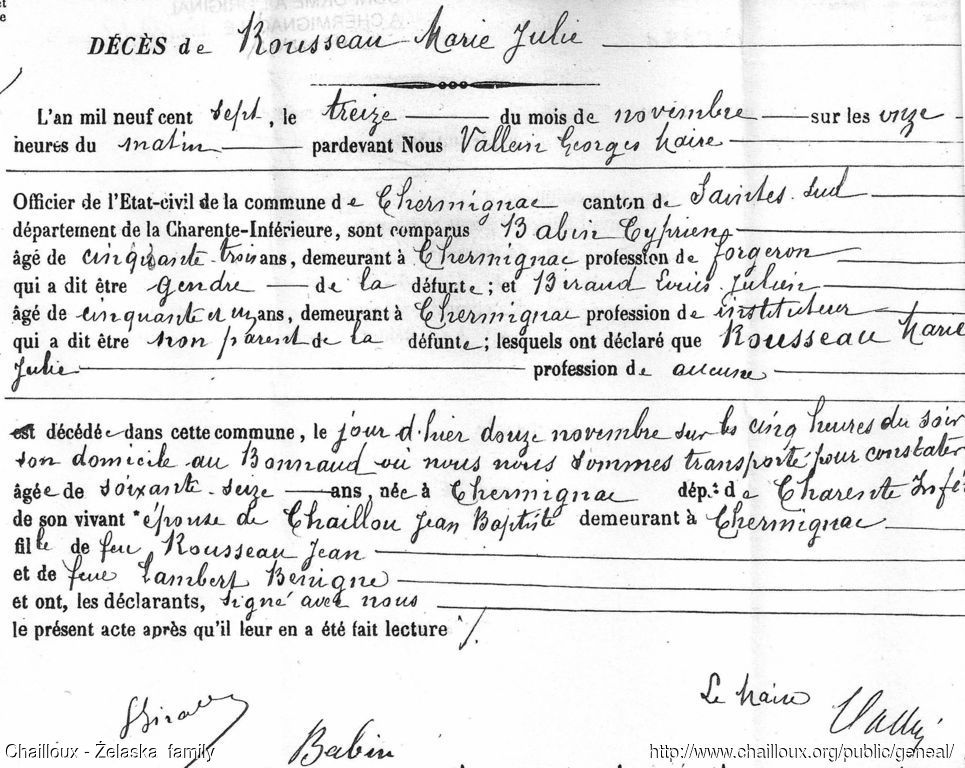 DÉCÈS de Rousseau Marie Julie
L'an mil neuf cent sept, le treize du mois de novembre sur les onze
heures du matin pardevant Nous Vallein Georges Maire
Officier de l'Etat-civil de la commune de Chermignac canton de Saintes-Sud
département de la Charente-Inférieure, sont comparus Babin Cyprien
âgé de cinquante-trois ans, demeurant à Chermignac profession de forgeron
qui a dit être gendre de la défunte; et Biraud Louis Julien
âgé de cinquante et un ans, demeurant à Chermignac profession de instituteur
qui a dit être non parent de la défunte; lesquels ont déclaré que Rousseau Marie
Julie profession de aucune
est décédée dans cette commune, le jour d'hier douze novembre sur les cinq heures du soir
son domicile au Bonnaud où nous nous sommes transporté pour constater
âgée de soixante-seize ans, née à Chermignac dép.t de Charente Infé
de son vivant épouse de Chaillou Jean Baptiste demeurant à Chermignac
fille de feu Rousseau Jean
et de feue Lambert Bénigne
et ont, les déclarants, signé avec nous
le présent acte après qu'il leur en a été fait lecture ./.
Le Maire
LBiraud Babin Vallein
Chailloux - Żelaska family http://www.chailloux.org/public/geneal/